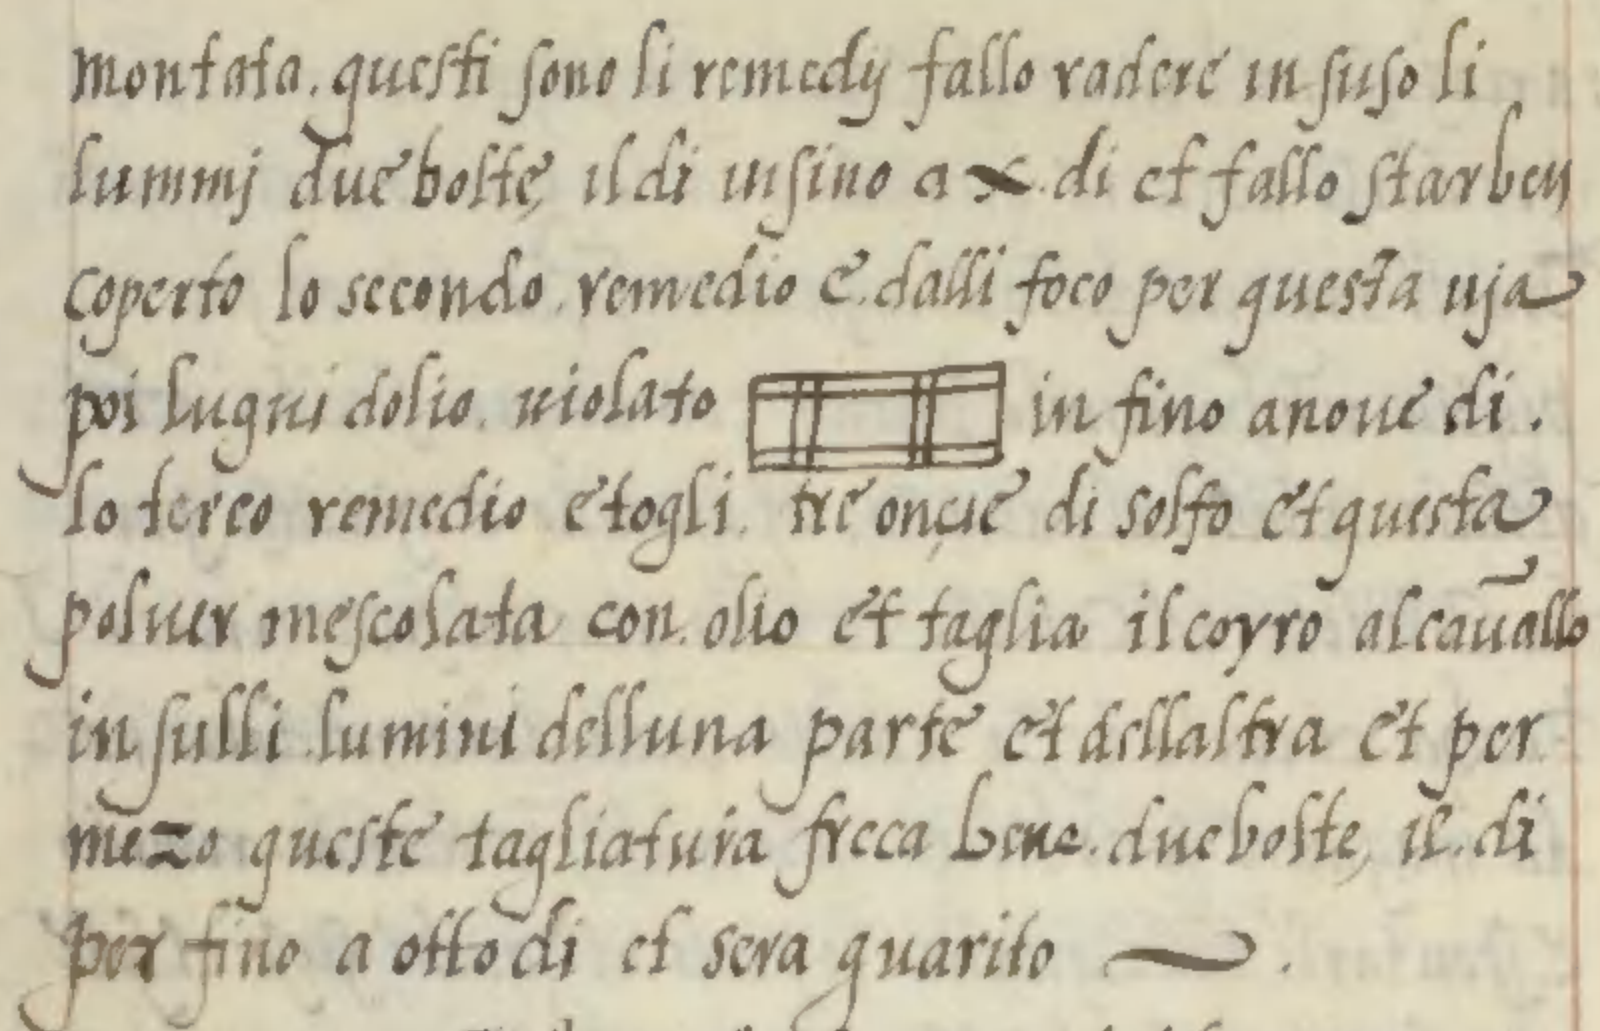 montata. questi sono li remedij fallo radere in suso li
lummj due bolte, il di insino a x. di et fallo star ben
coperto lo secondo. remedio e. dalli foco per questa uja
poi lugni dolio. uiolato in fino a noue di.
lo terco remedio e togli. tre onçie di solfo et questa
poluer mescolata con. olio et taglia il coyro al cauallo
in sulli lumini delluna parte et dellaltra et per
mezo queste tagliatura freca bene. due bolte, il. di
per fino a otto di et sera guarito